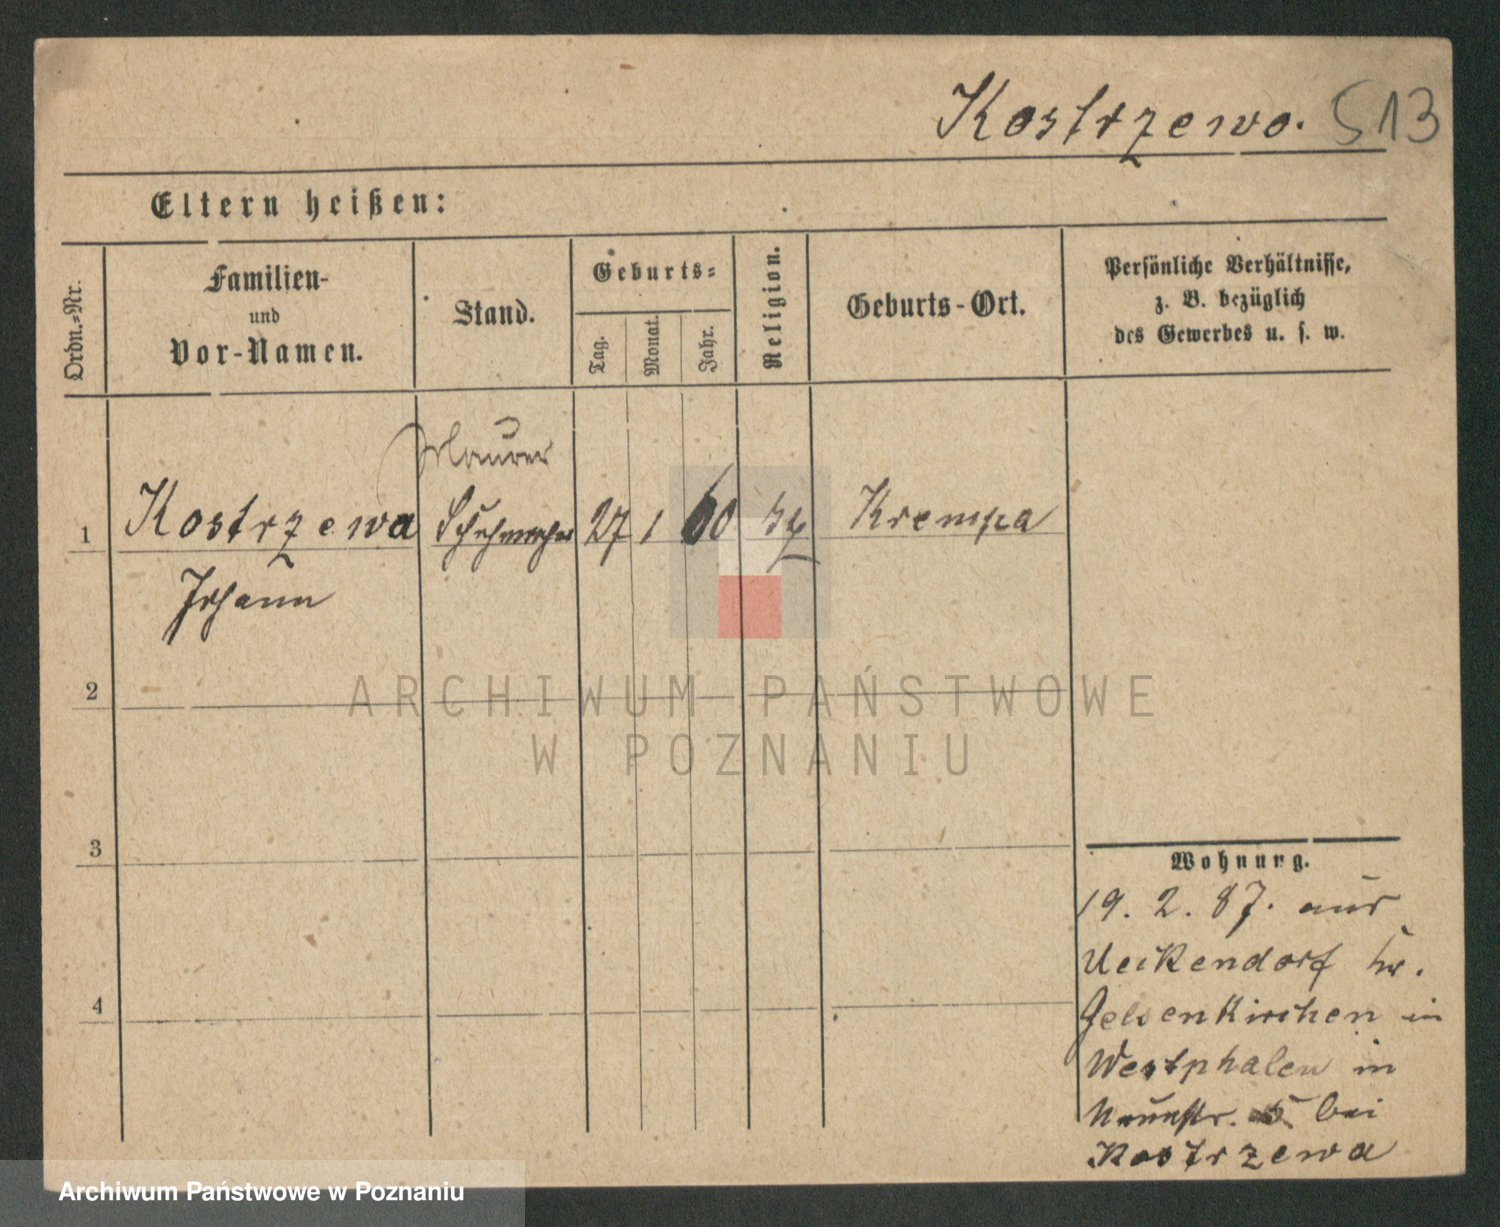 Kostrzewo. 513
Eltern heißen:
Ordn.-Nr.
Familien-
und
Vor-Namen.
Stand.
Geburts-
Tag.
Monat.
Jahr.
Religion.
Geburts-Ort.
Persönliche Verhältnisse,
z. B. bezüglich
des Gewerbes u. s. w.
Maurer
1 Kostrzewa Schuhmacher 27 1 60 Krempa
Johann
2
ARCHIWUM PAŃSTWOWE
W POZNANIU
3
4
Wohnung.
19. 2. 87. aus
Ueckendorf Kr.
Gelsenkirchen in
Westphalen in
bei
Kostrzewa
Archiwum Państwowe w Poznaniu